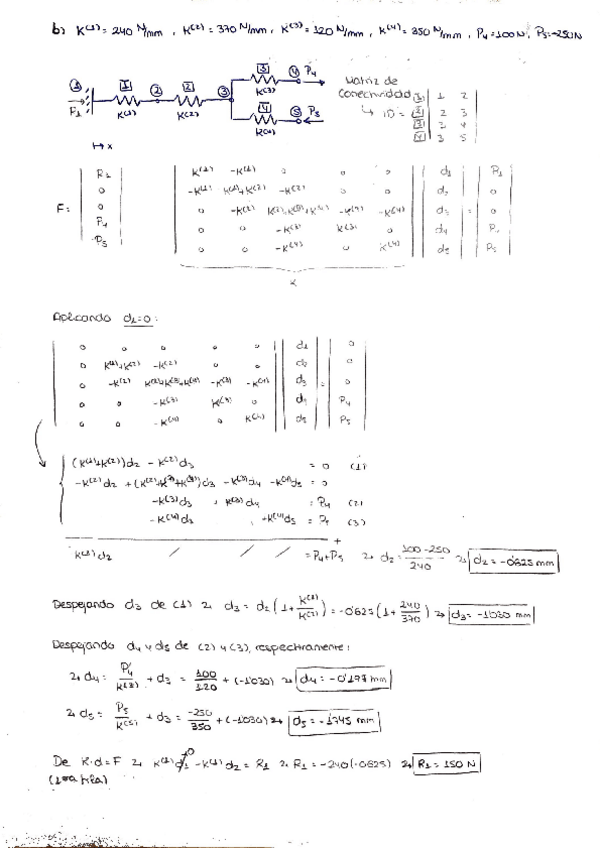 b) K⁽¹⁾ = 240 N/mm , K⁽²⁾ = 370 N/mm , K⁽³⁾ = 120 N/mm , K⁽⁴⁾ = 350 N/mm , P₄ = 100N , P₅ = -250N
① ② ③ ④ P₄
1 2 3
K⁽¹⁾ K⁽²⁾ K⁽³⁾
F₁
4 ⑤ P₅
K⁽⁴⁾
↦ x
Matriz de
conectividad
↳ ID =
1 1 2
2 2 3
3 3 4
4 3 5
F: R₁ 0 0 P₄ P₅
K⁽¹⁾ -K⁽¹⁾ 0 0 0 d₁ R₁
-K⁽¹⁾ K⁽¹⁾+K⁽²⁾ -K⁽²⁾ 0 0 d₂ 0
0 -K⁽²⁾ K⁽²⁾+K⁽³⁾+K⁽⁴⁾ -K⁽³⁾ -K⁽⁴⁾ d₃ = 0
0 0 -K⁽³⁾ K⁽³⁾ 0 d₄ P₄
0 0 -K⁽⁴⁾ 0 K⁽⁴⁾ d₅ P₅
K
Aplicando d₁=0:
0 0 0 0 0 d₁ 0
0 K⁽¹⁾+K⁽²⁾ -K⁽²⁾ 0 0 d₂ 0
0 -K⁽²⁾ K⁽²⁾+K⁽³⁾+K⁽⁴⁾ -K⁽³⁾ -K⁽⁴⁾ d₃ = 0
0 0 -K⁽³⁾ K⁽³⁾ 0 d₄ P₄
0 0 -K⁽⁴⁾ 0 K⁽⁴⁾ d₅ P₅
(K⁽¹⁾+K⁽²⁾)d₂ - K⁽²⁾d₃ = 0 (1)
-K⁽²⁾d₂ + (K⁽²⁾+K⁽³⁾+K⁽⁴⁾)d₃ - K⁽³⁾d₄ - K⁽⁴⁾d₅ = 0
-K⁽³⁾d₃ + K⁽³⁾d₄ = P₄ (2)
-K⁽⁴⁾d₃ + K⁽⁴⁾d₅ = P₅ (3)
+
K⁽¹⁾d₂ / / / = P₄+P₅ → d₂ = (100-250)/240 → d₂ = -0'625 mm
Despejando d₃ de (1) → d₃ = d₂(1 + K⁽¹⁾/K⁽²⁾) = -0'625(1 + 240/370) → d₃ = -1'030 mm
Despejando d₄ y d₅ de (2) y (3), respectivamente:
→ d₄ = P₄/K⁽³⁾ + d₃ = 100/120 + (-1'030) → d₄ = -0'197 mm
→ d₅ = P₅/K⁽⁵⁾ + d₃ = -250/350 + (-1'030) → d₅ = -1'745 mm
De K·d=F → K⁽¹⁾d₁ 0 - K⁽¹⁾d₂ = R₁ → R₁ = -240(-0'625) → R₁ = 150 N
(1ra fila)